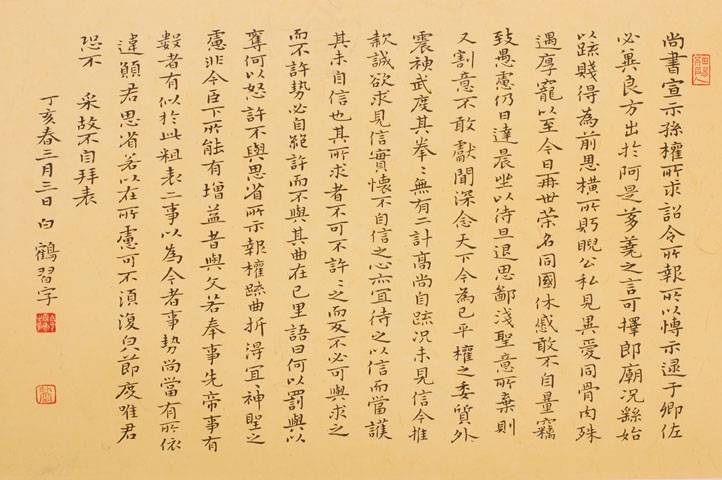 尚書宣示孫權所求詔令所報所以博示逮于卿佐
必冀良方出於阿是芻蕘之言可擇郎廟況繇始
以疏賤得為前思橫所眄睨公私見異愛同骨肉殊
遇厚寵以至今日再世榮名同國休慼敢不自量竊
致愚慮仍日達晨坐以待旦退思鄙淺聖意所棄則
又割意不敢獻聞深念天下今為已平權之委質外
震神武度其拳々無有二計高尚自疏況未見信今推
款誠欲求見信實懷不自信之心亦宜待之以信而當護
其未自信也其所求者不可不許々之而反不必可與求之
而不許勢必自絕許而不與其曲在己里語曰何以罰與以
奪何以怒許不與思省所示報權疏曲折得宜々神聖之
慮非今臣下所能有增益昔與文若奉事先帝事有
數者有似於此粗表二事以為今者事勢尚當有所依
違願君思省若以在所慮可不須復貞節度唯君
恐不 采故不自拜表
丁亥春三月三日白鶴習字